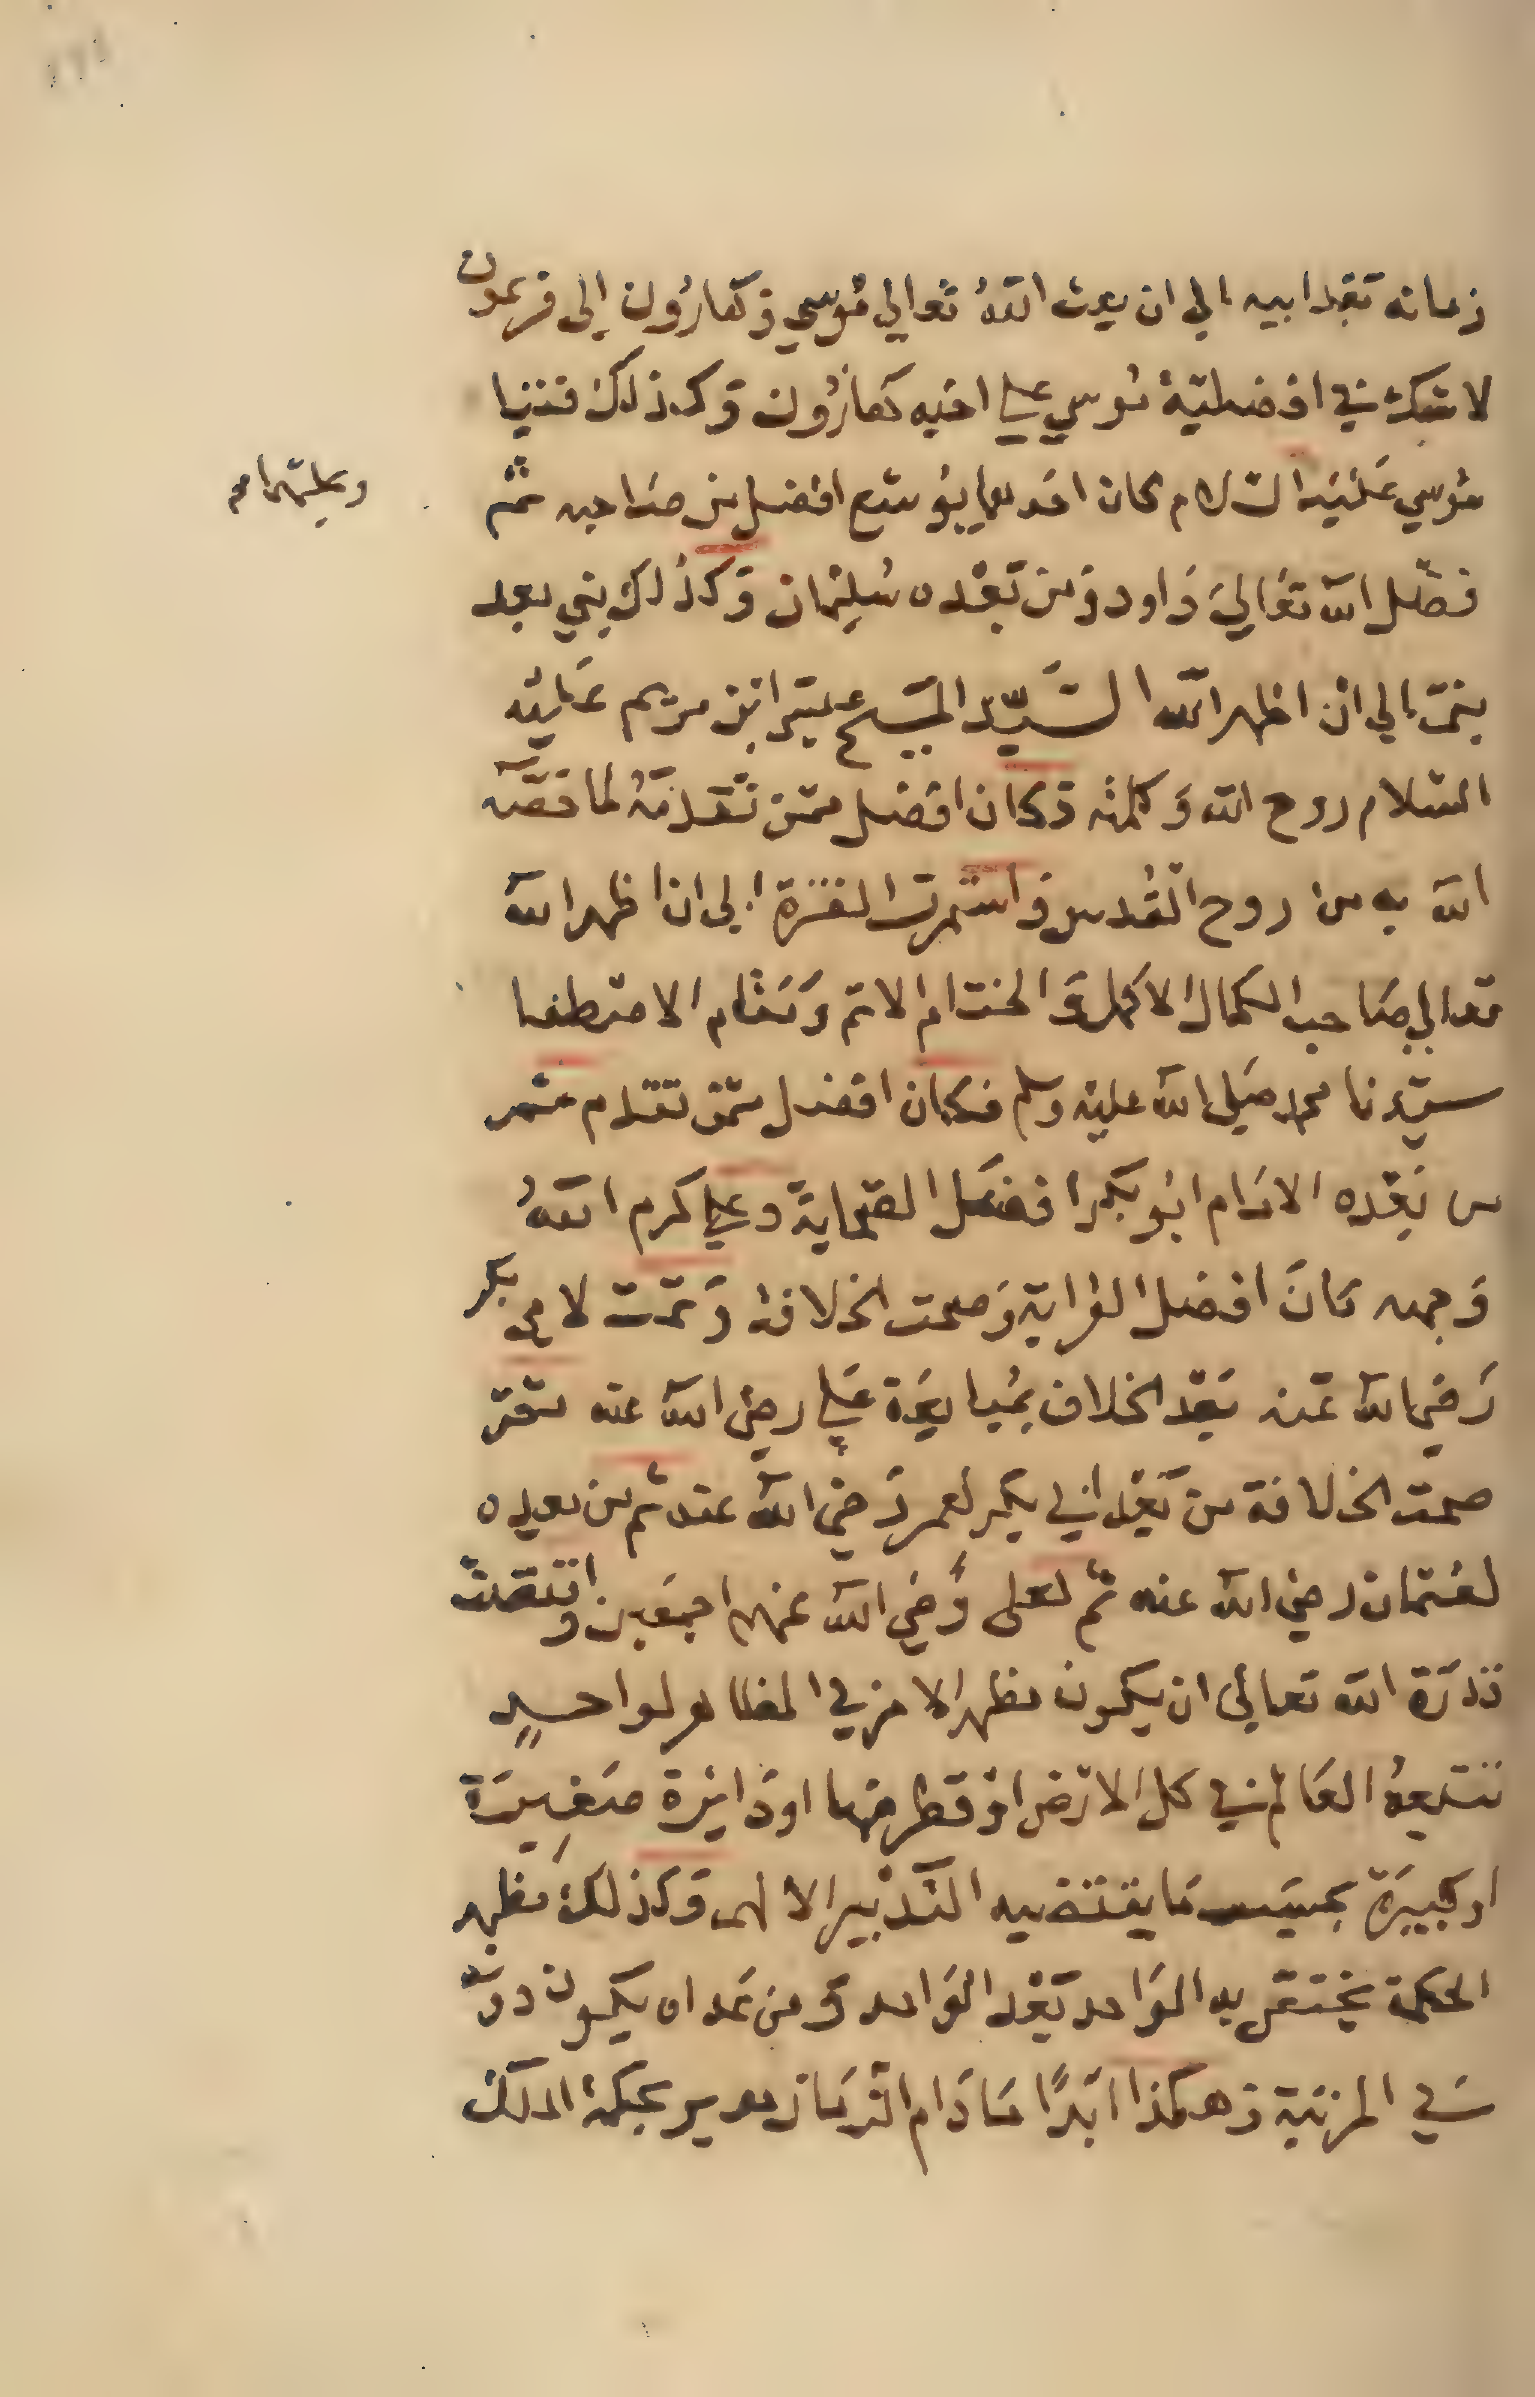 زمانه بعد ابيه الي ان بعث الله تعالي موسي وهارون إلى فرعون
لا شك في افضلية موسي علي اخيه هارون وكذلك فتيا
موسي عليه السلام كان احدهما يوشع افضل من صاحبه ثم
وعليهما
فضل الله تعالي داود ومن بعده سليمان وكذلك نبي بعد
نبي الي ان اظهر الله السيد المسيح عيسى ابن مريم عليه
السلام روح الله وكلمته وكان افضل ممن تقدمه لما خصه
الله به من روح القدس واستمرت الفترة الى ان اظهر الله
تعالي صاحب الكمال الاكمل والختام الاتم ومقام الاصطفا
سيدنا محمد صلى الله عليه وسلم فكان افضل ممن تقدم ثم
من بعده الامام ابو بكر افضل الصحابة وعلي كرم الله
وجهه كان افضل القرابة وصحت الخلافة وتمت لابي بكر
رضي الله عنه بعد الخلاف بمبايعة علي رضي الله عنه ثم
صحت الخلافة من بعد ابي بكر لعمر رضي الله عنه ثم من بعده
لعثمان رضي الله عنه ثم لعلى رضي الله عنهم اجمعين واقتضت
قدرة الله تعالى ان يكون مظهر الامر في المظاهر لواحدٍ
تتبعه العالم في كل الارض او قطر منها او دائرة صغيرة
او كبيرة بحسب ما يقتضيه التدبير الالهى وكذلك مظهر
الحكمة يختص به الواحد بعد الواحد ومن عداه يكون دونه
في المرتبة وهكذا ابدًا ما دام الزمان يدبر بحكمة الملك